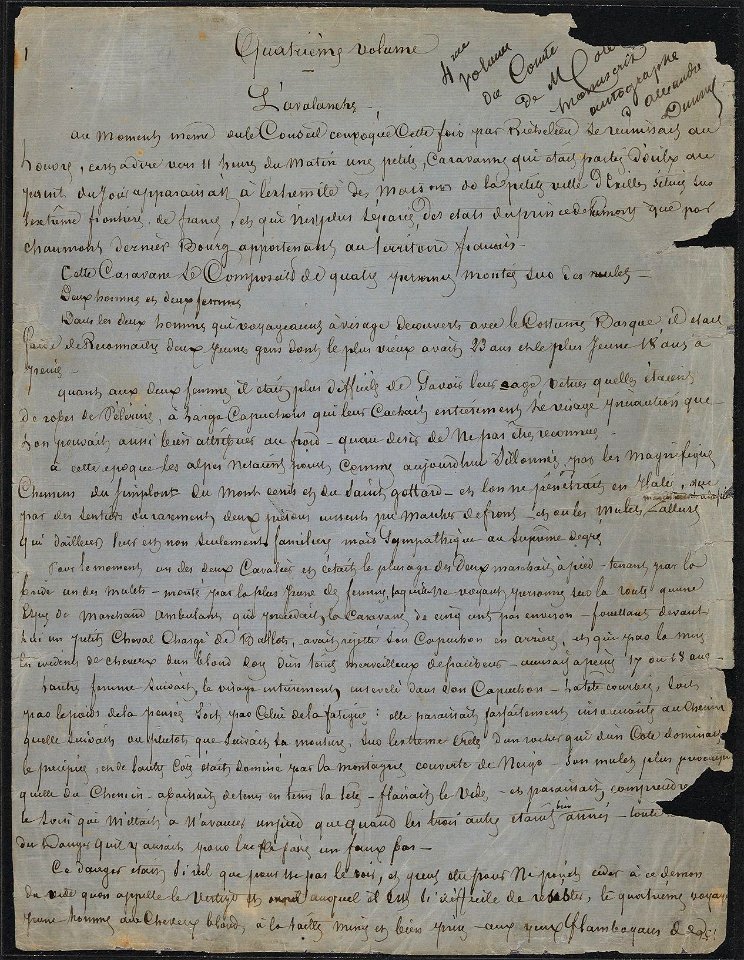 1
Quatrième volume
4me
volume
du Comte
de M
manuscrit
autographe
d'alexandre
Dumas
L'avalanche
au moment même ou le Conseil convoqué Cette fois par Richelieu se reunissait au
Louvre, cest a dire vers 11 heures du Matin une petite Caravanne qui était partie d'oulx au
point du Jour apparaissait a lextremité des Maisons de la petite ville d'Exilles située sur
lextrème frontière de france, et qui n'est plus séparée des etats du prince de Piemont que par
chaumont dernier Bourg appartenant au territoire francais
Cette Caravane se Composait de quatre personnes montées sur des mulets
Deux hommes et deux femmes
Dans les deux hommes qui voyageaient à visage decouvert avec le Costume Basque il etait
facile de Reconnaitre deux Jeunes gens dont le plus vieux avait 23 ans et le plus Jeune 18 ans à
peine
quant aux deux femmes il etait plus difficile de Savoir leur age vetues quelles étaient
de robes de Pelerine, à Larges Capuchons qui leur Cachait entièrement le visage précaution que
lon pouvait aussi bien attribuer au froid quau desir de Ne pas être reconnue
a cette epoque les alpes netaient point comme aujourdhui Sillonnées par les magnifiques
Chemins du Simplon du Mont cenis et du Saint gottard et lon ne pénétrait en Italie que
par des Sentiers ou rarement deux pietons eussent pu marcher de front et ou les Mulets Lallure
qui dailleurs leur est non seulement familiere mais Sympathique au Suprème degré
Pour le moment un des deux Cavaliers et c'était le plus agé des Deux marchait à pied tenant par la
bride un des mulets monté par la plus Jeune des femmes laquelle ne voyant personne sur la route quune
Espece de Marchand ambulant qui precedait la Caravane de cinq cent pas environ fouettant devant
lui un petit Cheval Chargé de Ballots, avait rejetté Son Capuchon en arriere, et qui par la mise
en evidence de cheveux dun blond doux d'un teint merveilleux de fraicheur accusait a peine 17 ou 18 ans
Lautre femme Suivait, le visage entierement enseveli dans Son Capuchon La tete courbée, Soit
par le poids de la pensée Soit par Celui de la fatigue : elle paraissait parfaitement insouciante au Chemin
quelle Suivait ou plutôt que Suivait sa monture, Sur lextreme Crete dun rocher qui dun Coté dominait
le precipice, et de lautre Coté etait dominé par la montagne couverte de Neige Son mulet plus préoccupé
quelle du Chemin abaissait de tems en tems la tête flairait le vide et paraissait comprendre
le Soin quil mettait a n'avancer un pied que quand les trois autres etaient bien toute
du Danger quil y aurait pour lui a faire un faux pas
Ce danger etait Si réel que pour ne pas le voir, et peut etre pour Ne point ceder à ce demon
du vide quon appelle le vertige et auquel il est Si difficile de resister, le quatrième voyag
Jeune homme aux Cheveux blonds, à la taille mince et bien prise aux yeux flamboyans de